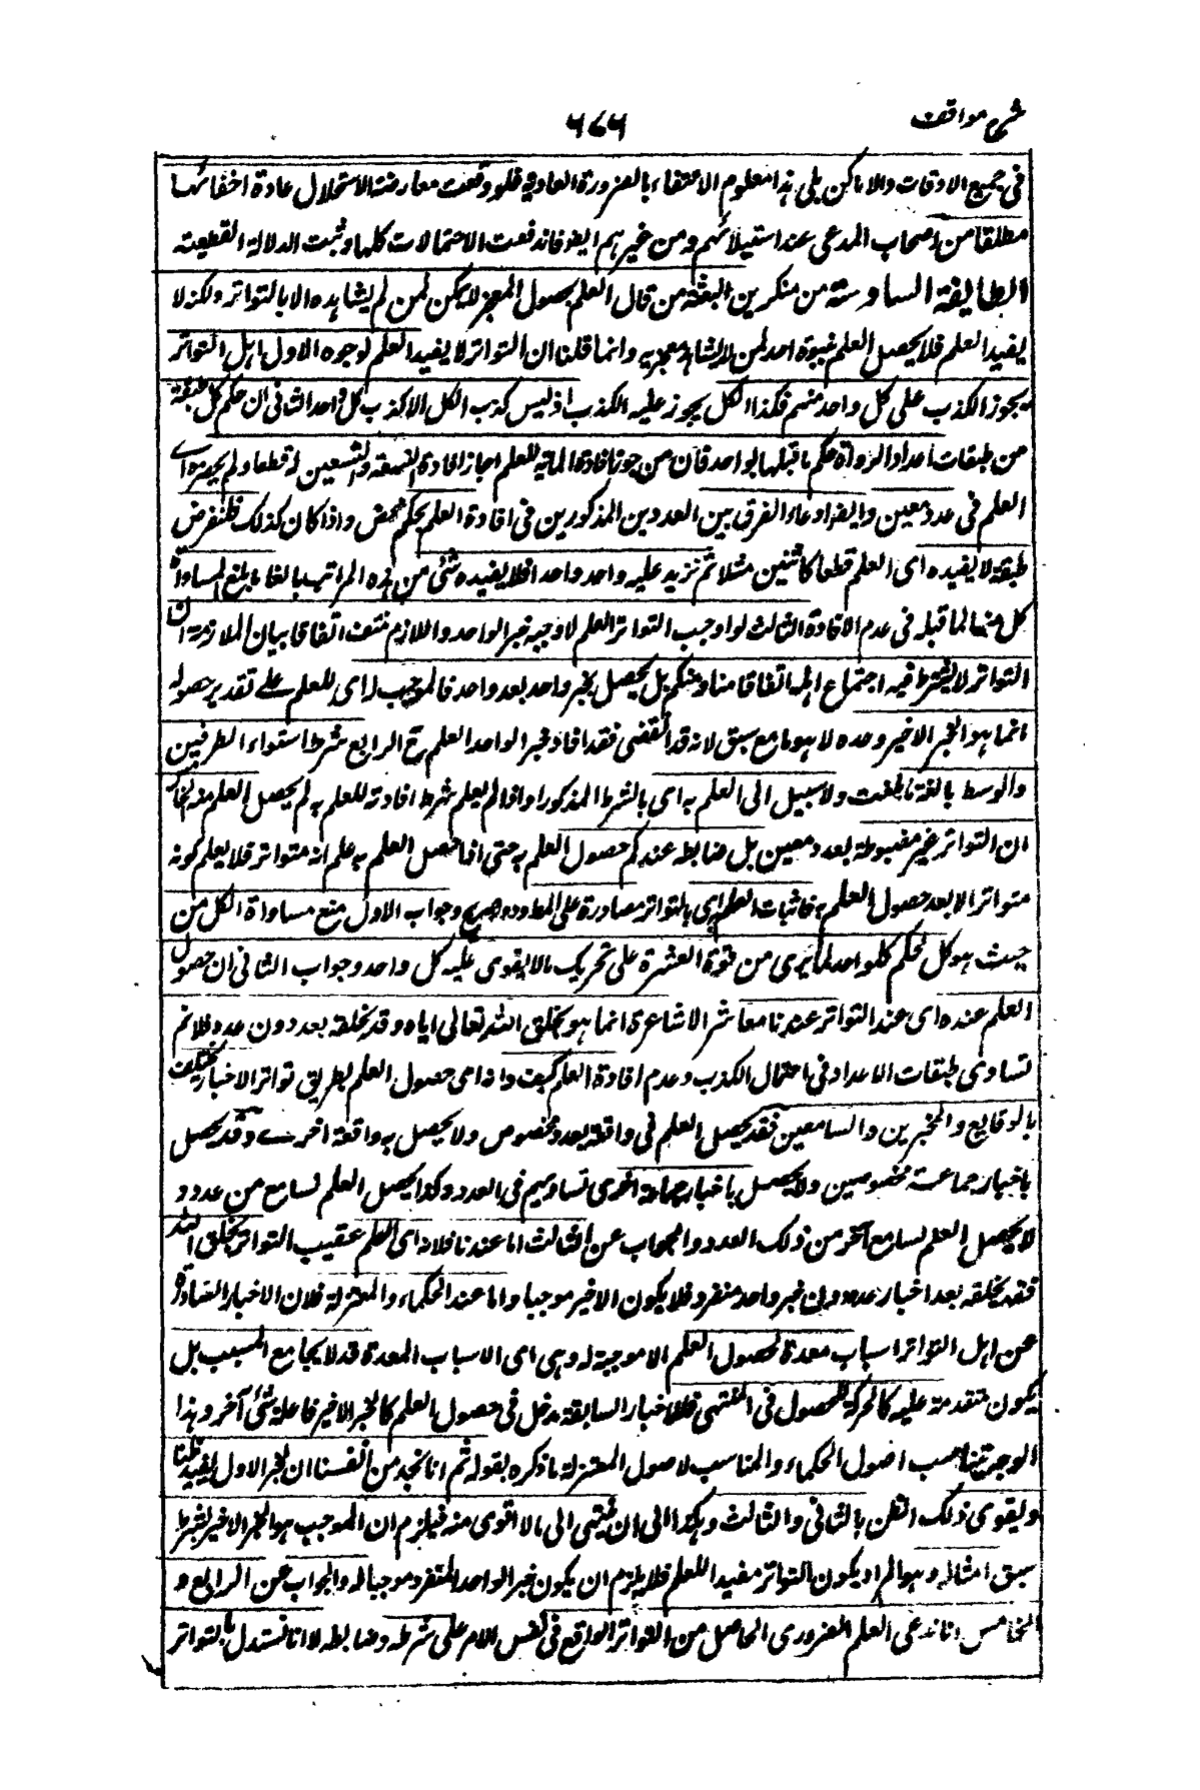 شرح مواقف
٦٧٦
في جميع الاوقات والاماكن بل هذا معلوم الانتفاء بالضرورة العادية فلو وقعت معارضة لاستحال عادة اخفائها
مطلقا من اصحاب المدعى عند استيلائهم ومن غيرهم ايضا فاندفعت الاحتمالات كلها وثبت الدلالة القطعية
الطايفة السادسة من منكرين البعثة من قال العلم بحصول المعجز لا يمكن لمن لم يشاهده الا بالتواتر ولكنه لا
يفيد العلم فلا يحصل العلم بنبوة احد لمن لا يشاهد معجزيه وانما قلنا ان التواتر لا يفيد العلم لوجوه الاول اهل التواتر
يجوز الكذب على كل واحد منهم فكذا الكل يجوز عليه الكذب اذ ليس كذب الكل الا كذب كل واحد الثاني ان حكم كل طبقة
من طبقات اعداد الرواة حكم ما قبلها بواحد فان من جوز افادة المائة للعلم اجاز افادة التسعة والتسعين له قطعا ولم يحصره اى
العلم في عدد معين وايضا ادعاء الفرق بين العددين المذكورين في افادة العلم تحكم محض واذا كان كذلك فلنفرض
طبقة لا يفيده اى العلم قطعا كاثنين مثلا ثم نزيد عليه واحد واحدا فلا يفيده شئ من هذه المراتب بالغا ما بلغ لمساواة
كل منها لما قبله في عدم الافادة الثالث لو اوجب التواتر العلم لاوجبه خبر الواحد واللازم منتف اتفاقا بيان الملازمة ان
التواتر لا يشترط فيه اجتماع اهله اتفاقا منا ومنكم بل يحصل بخبر واحد بعد واحد فالموجب له اى للعلم على تقدير حصوله
انما هو الخبر الاخير وحده لا هو مع ما سبق لانه قد انقضى فقد افاد خبر الواحد العلم هع الرابع شرط استواء الطرفين
والوسط بالغة ما بلغت ولا سبيل الى العلم به اى بالشرط المذكور واذا لم يعلم شرط افادته للعلم به لم يحصل العلم منه الخامس
ان التواتر غير مضبوط بعدد معين بل ضابطه عندكم حصول العلم به حتى اذا حصل العلم به علم انه متواتر فلا يعلم كونه
متواترا الا بعد حصول العلم به فاثبات العلم به اى بالتواتر مصادرة على المط ودور صريح وجواب الاول منع مساواة الكل من
حيث هو كل لحكم كل واحد لما يرى من قوة العشرة على تحريك ما لا يقوى عليه كل واحد وجواب الثاني ان حصول
العلم عنده اى عند التواتر عندنا معاشر الاشاعرة انما هو بخلق الله تعالى اياه وقد يخلقه بعدد دون عدد فلا نم
تساوى طبقات الاعداد في احتمال الكذب وعدم افادة العلم كيف وانه اى حصول العلم بطريق تواتر الاخبار يختلف
بالوقايع والمخبرين والسامعين فقد يحصل العلم في واقعة بعدد مخصوص ولا يحصل به واقعة اخرى وقد يحصل
باخبار جماعة مخصوصين ولا يحصل باخبار جماعة اخرى تساويهم في العدد وكذا يحصل العلم لسامع من عدد و
لا يحصل العلم لسامع آخر من ذلك العدد والجواب عن الثالث اما عندنا فلانه اى العلم عقيب التواتر بخلق الله
فقد يخلقه بعد اخبار عدد دون خبر واحد منفرد فلا يكون الاخير موجبا واما عند الحكماء والمعتزلة فلان الاخبار الصادرة
عن اهل التواتر اسباب معدة لحصول العلم لا موجبة له وهى اى الاسباب المعدة قد لا يجامع المسبب بل
يكون متقدمة عليه كالحركة للحصول في المنتهى فللاخبار السابقة مدخل في حصول العلم كالخبر الاخير فاعله شئ آخر وهذا
الوجه يناسب اصول الحكماء والمناسب لاصول المعتزلة ما ذكره بقوله ثم انا نجد من انفسنا ان الخبر الاول يفيد ظنا
ويقوى ذلك الظن بالثاني والثالث وهكذا الى ان ينتهى الى ما لا اقوى منه فيلزم ان الموجب هو الخبر الاخير بشرط
سبق امثاله وهو المراد بكون التواتر مفيدا للعلم فلا يلزم ان يكون خبر الواحد المنفرد موجبا له والجواب عن الرابع و
الخامس انا ندعى العلم الضرورى الحاصل من التواتر الواقع في نفس الامر على شرطه وضابطه لا انا نستدل بالتواتر